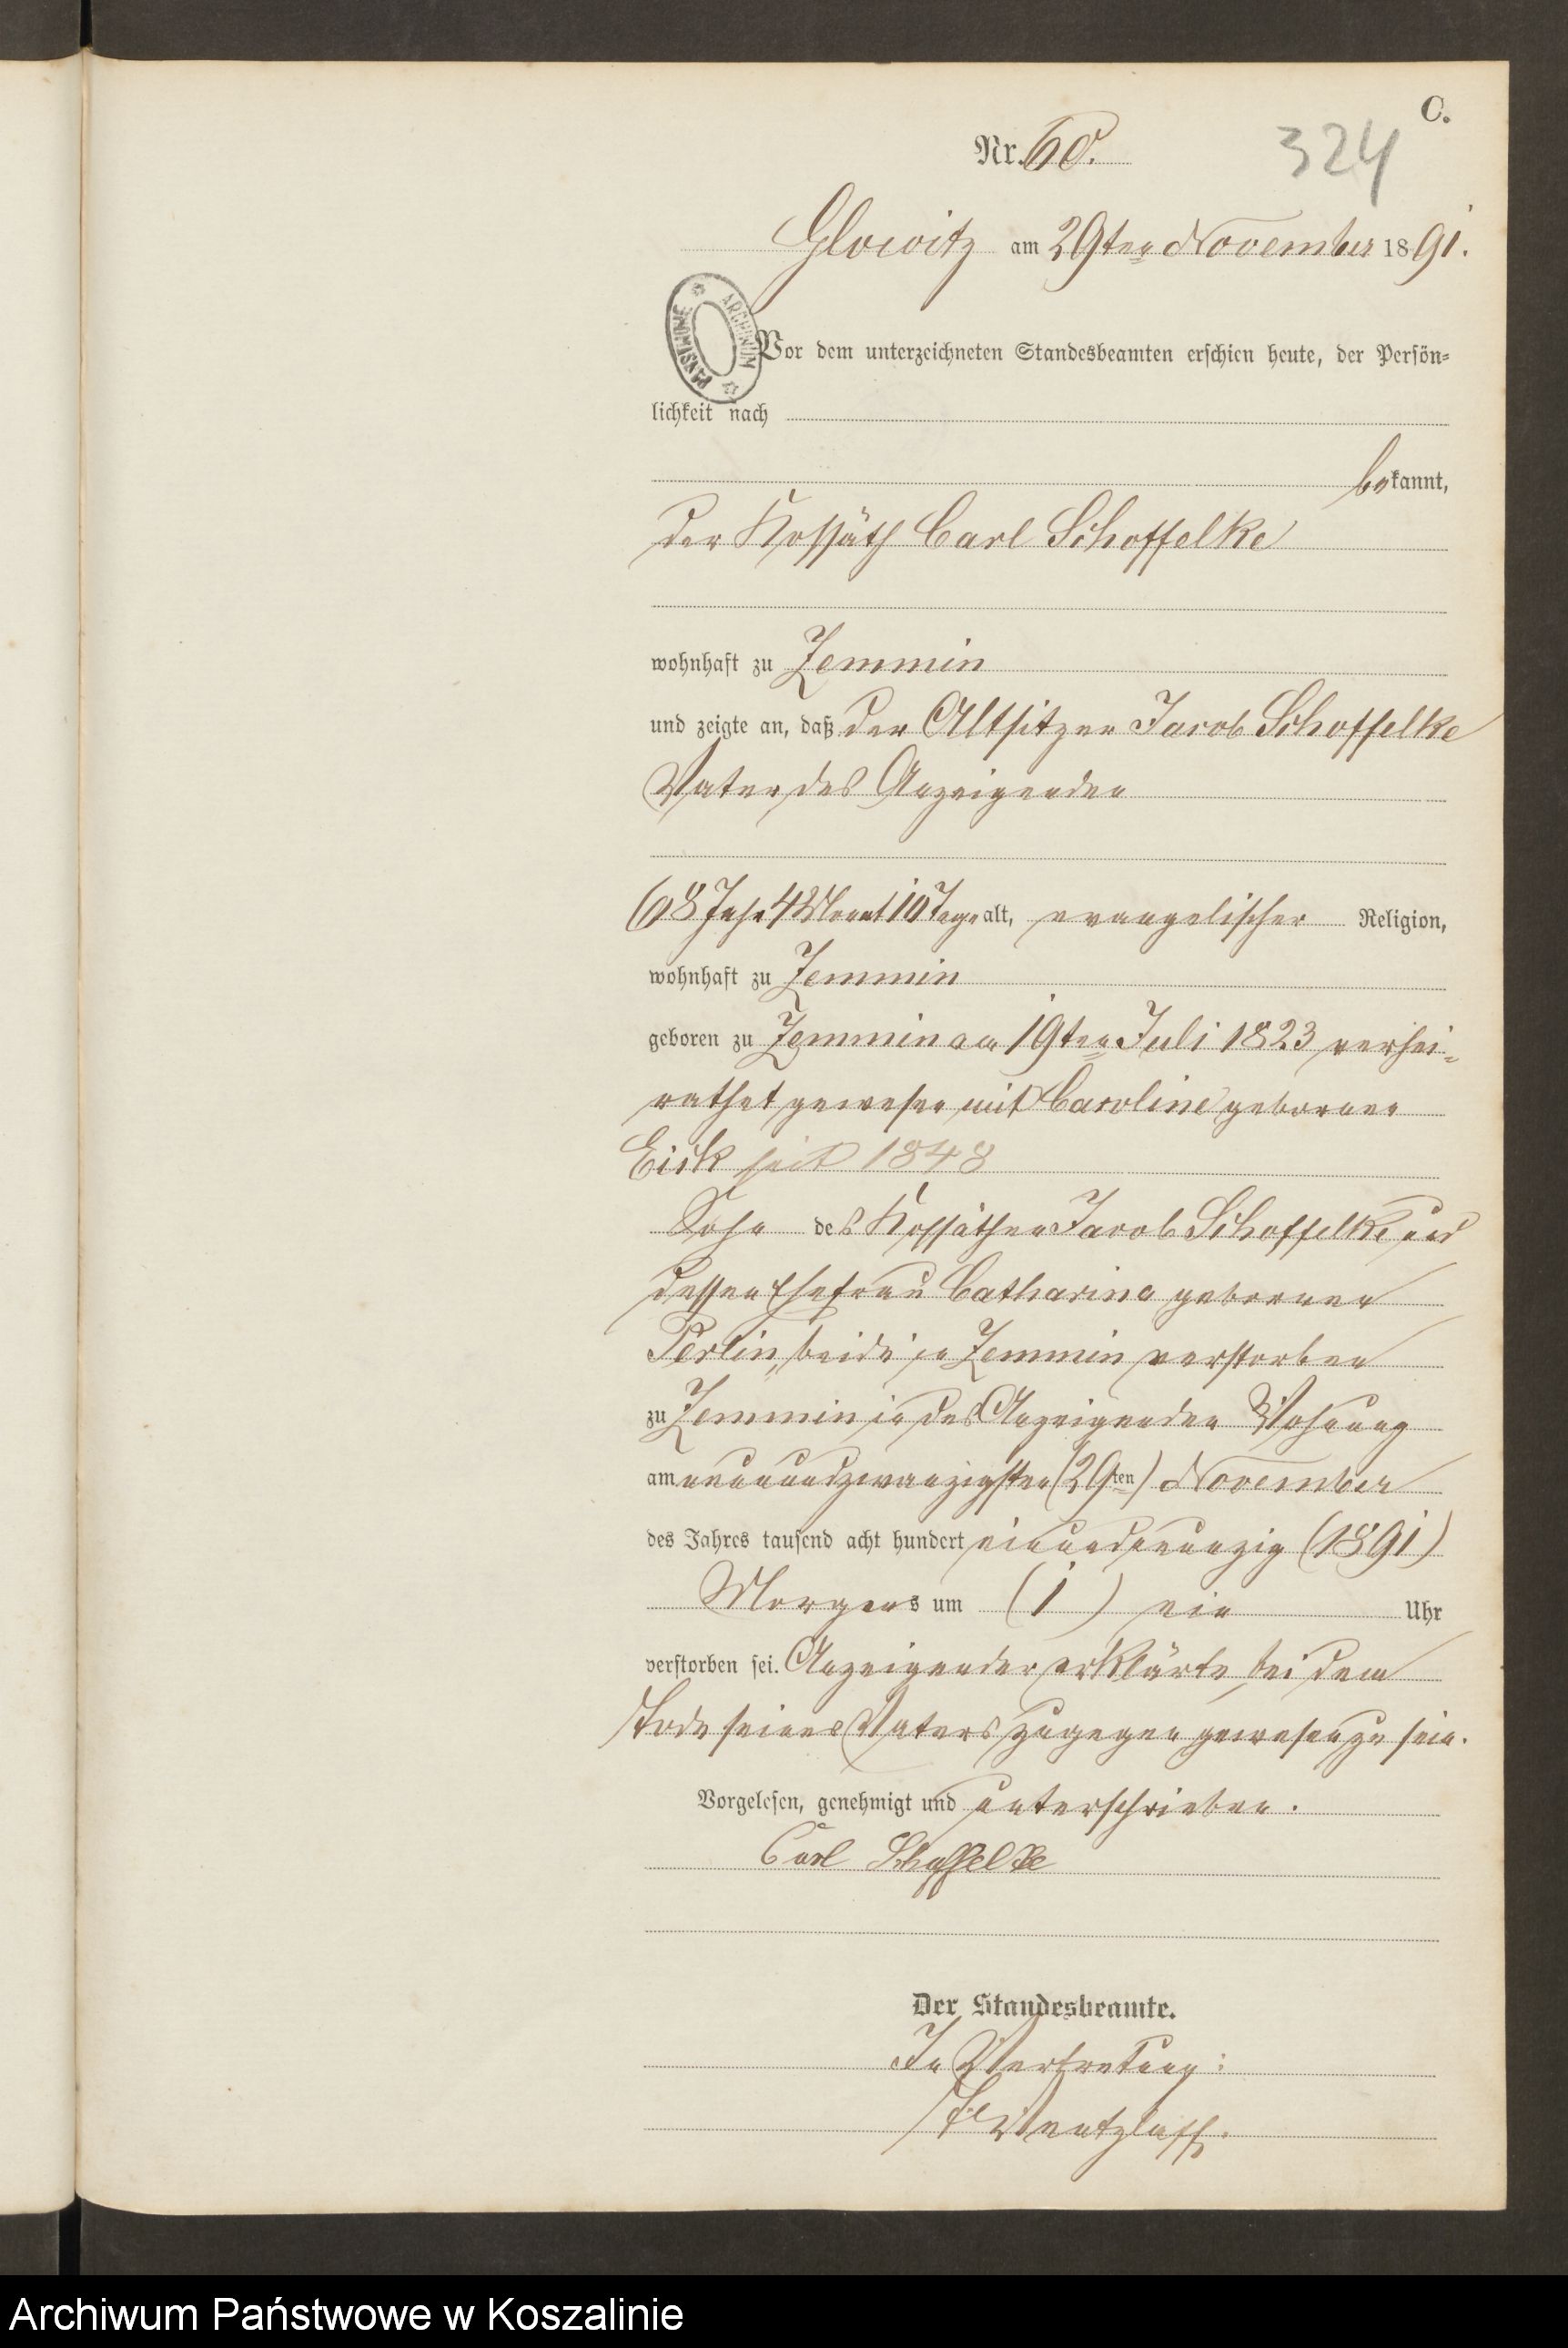 C.
Nr. 60.
324
Glowitz am 29ten November 1891.
ARCHIWUM PAŃSTWOWE
Vor dem unterzeichneten Standesbeamten erschien heute, der Persön=
lichkeit nach
bekannt,
der Kossäth Carl Schoffelke
wohnhaft zu Zemmin
und zeigte an, daß der Altsitzer Jacob Schoffelke
Vater des Anzeigenden
68 Jahr 4 Monat 10 Tage alt, evangelischer Religion,
wohnhaft zu Zemmin
geboren zu Zemmin am 19ten Juli 1823 verhei-
rathet gewesen mit Caroline geborenen
Eick seit 1848
Sohn des Kossäthen Jacob Schoffelke und
dessen Ehefrau Catharina geborenen
Perlin, beide in Zemmin verstorben
zu Zemmin in des Anzeigenden Wohnung
am neunundzwanzigsten (29ten) November
des Jahres tausend acht hundert einundneunzig (1891)
Morgens um (1) ein Uhr
verstorben sei. Anzeigender erklärte, bei dem
Tode seines Vaters zugegen gewesen zu sein.
Vorgelesen, genehmigt und unterschrieben.
Carl Schoffelke
Der Standesbeamte.
In Vertretung:
Wentzlaff.
Archiwum Państwowe w Koszalinie